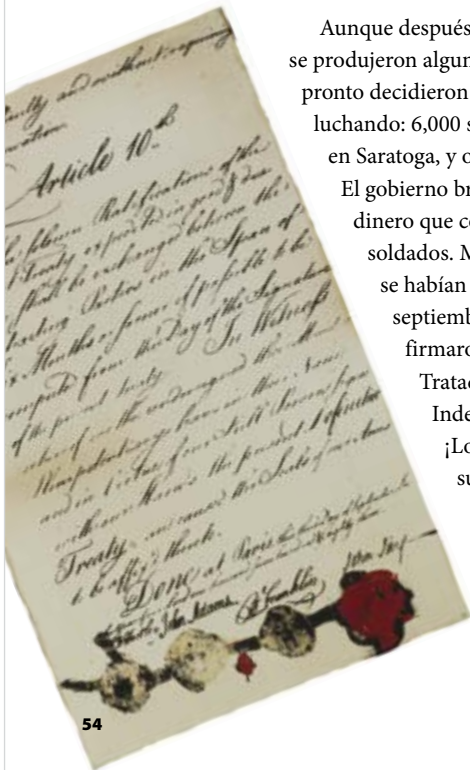 Aunque después
se produjeron algun
pronto decidieron
luchando: 6,000 s
en Saratoga, y o
El gobierno br
dinero que co
soldados. M
se habían
septiemb
firmaro
Tratad
Inde
¡Lo
su
and without requiring
Article 10th
Ratifications of the
Treaty expedited in good & due
shall be exchanged between the
Parties in the Space of
Months or sooner if possible to be
computed from the Day of the Signature
of the present Treaty. In Witness
whereof we the undersigned their
Plenipotentiary have in their Name
and in Virtue of our Full Powers
the present Definitive
Treaty, and caused the Seals of our Arms
to be affix'd thereto.
Done at Paris, this third Day of September
John Adams B Franklin John Jay
54